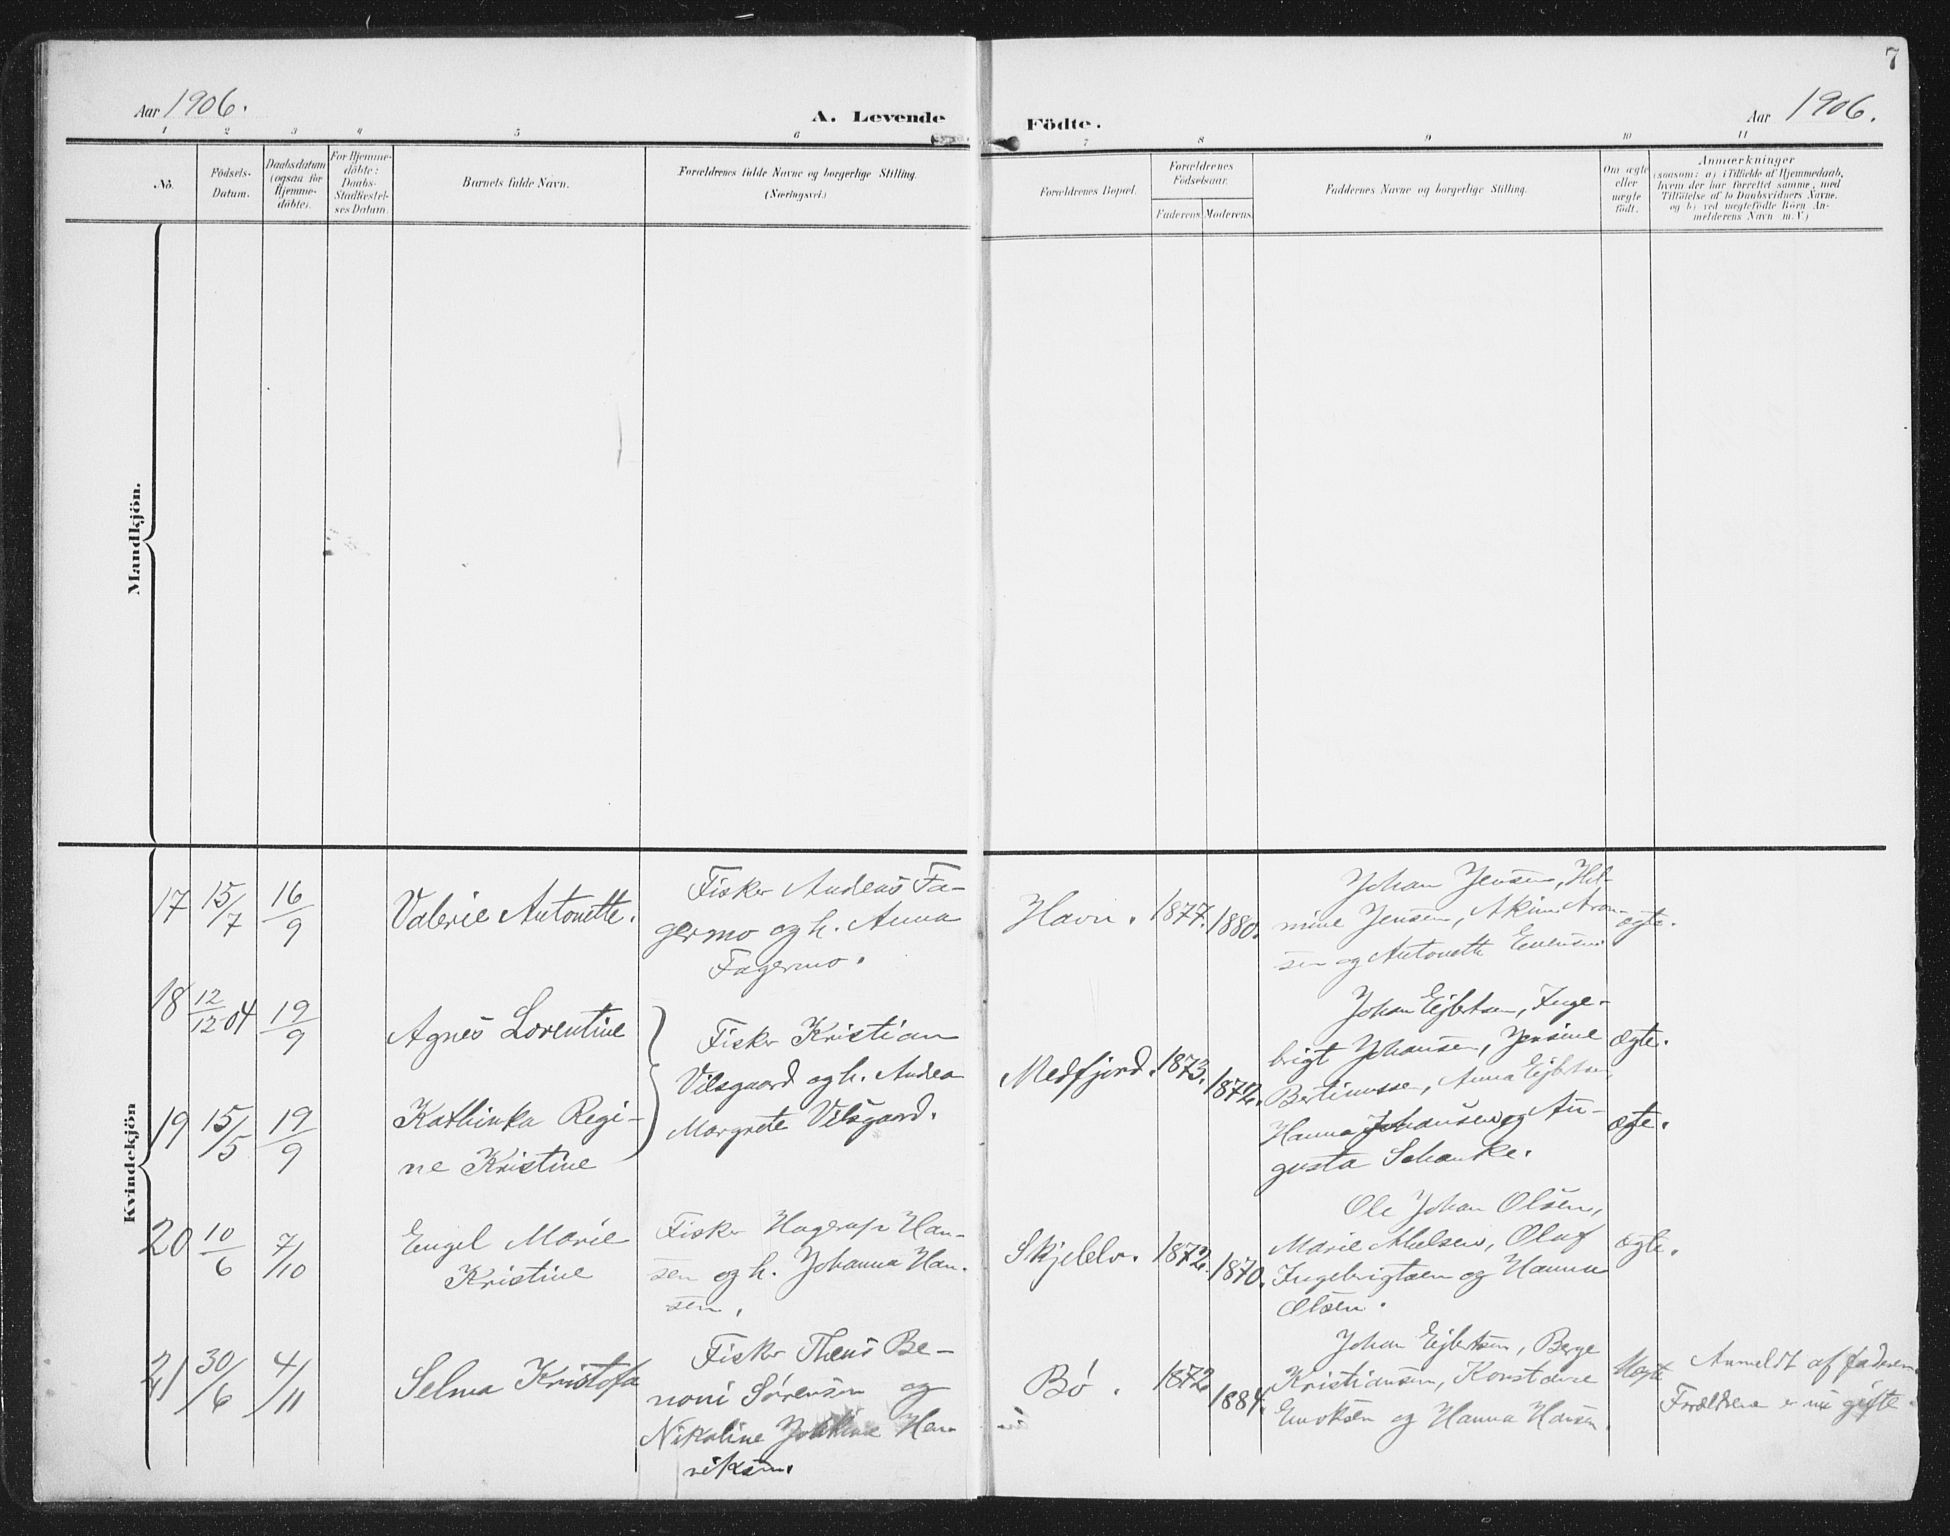 7
Aar 1906.
A. Levende
Födte.
Aar 1906.
1 2 3 4 5 6 7 8 9 10 11
No.
Födsels-
Datum.
Daabsdatum
(ogsaa for
Hjemme-
döbte).
For Hjemme-
döbte:
Daabs-
Stadfæstel-
ses Datum.
Barnets fulde Navn.
Forældrenes fulde Navne og borgerlige Stilling.
(Næringsvei.)
Forældrenes Bopæl.
Forældrenes
Födselsaar.
Faderens. Moderens.
Faddernes Navne og borgerlige Stilling.
Om ægte
eller
uægte
födt.
Anmærkninger
(saasom: a) i Tilfælde af Hjemmedaab,
hvem der har forrettet samme, med
Tilföielse af to Daabsvidners Navne,
og b) ved uægtefödte Börn An-
melderens Navn m. V.)
Mandkjön.
Kvindekjön
17 15/7 16/9 Valerie Antonette.
Fisker Andeas Fa-
germo og h. Anna
Fagermo.
Havn. 1877. 1880.
Johan Jensen, Hil-
mine Jensen, Akim Aron-
sen og Antonette Evensen
ægte.
18 12/12 04 19/9 Agnes Lorentine
19 15/5 19/9 Kathinka Regi-
ne Kristine
Fisker Kristian
Vilsgaard og h. Andrea
Margrete Vilsgaard.
Medfjord. 1873. 1872.
Johan Ejbertsen, Inge-
brigt Johansen, Jensine
Bertinussen, Anna Ejbertsen,
Hanna Johansen og Au-
gusta Schanke.
ægte.
ægte.
20 10/6 7/10 Engel Marie
Kristine
Fisker Hagerup Han-
sen og h. Johanna Han-
sen.
Skjelelv. 1872. 1870.
Ole Johan Olsen,
Marie Nielsen, Oluf
Ingebrigtsen og Hanna
Olsen.
ægte.
21 30/6 4/11 Selma Kristofa
Fisker Thens Be-
noni Sørensen og
Nikoline Hen
riksen.
Bø. 1872 1884.
Johan Ejbertsen, Berge
Kristiansen, Konstanse
Enoksen og Hanna Hansen.
Uægte
Anmeldt af faderen
Forældrene er nu gifte.